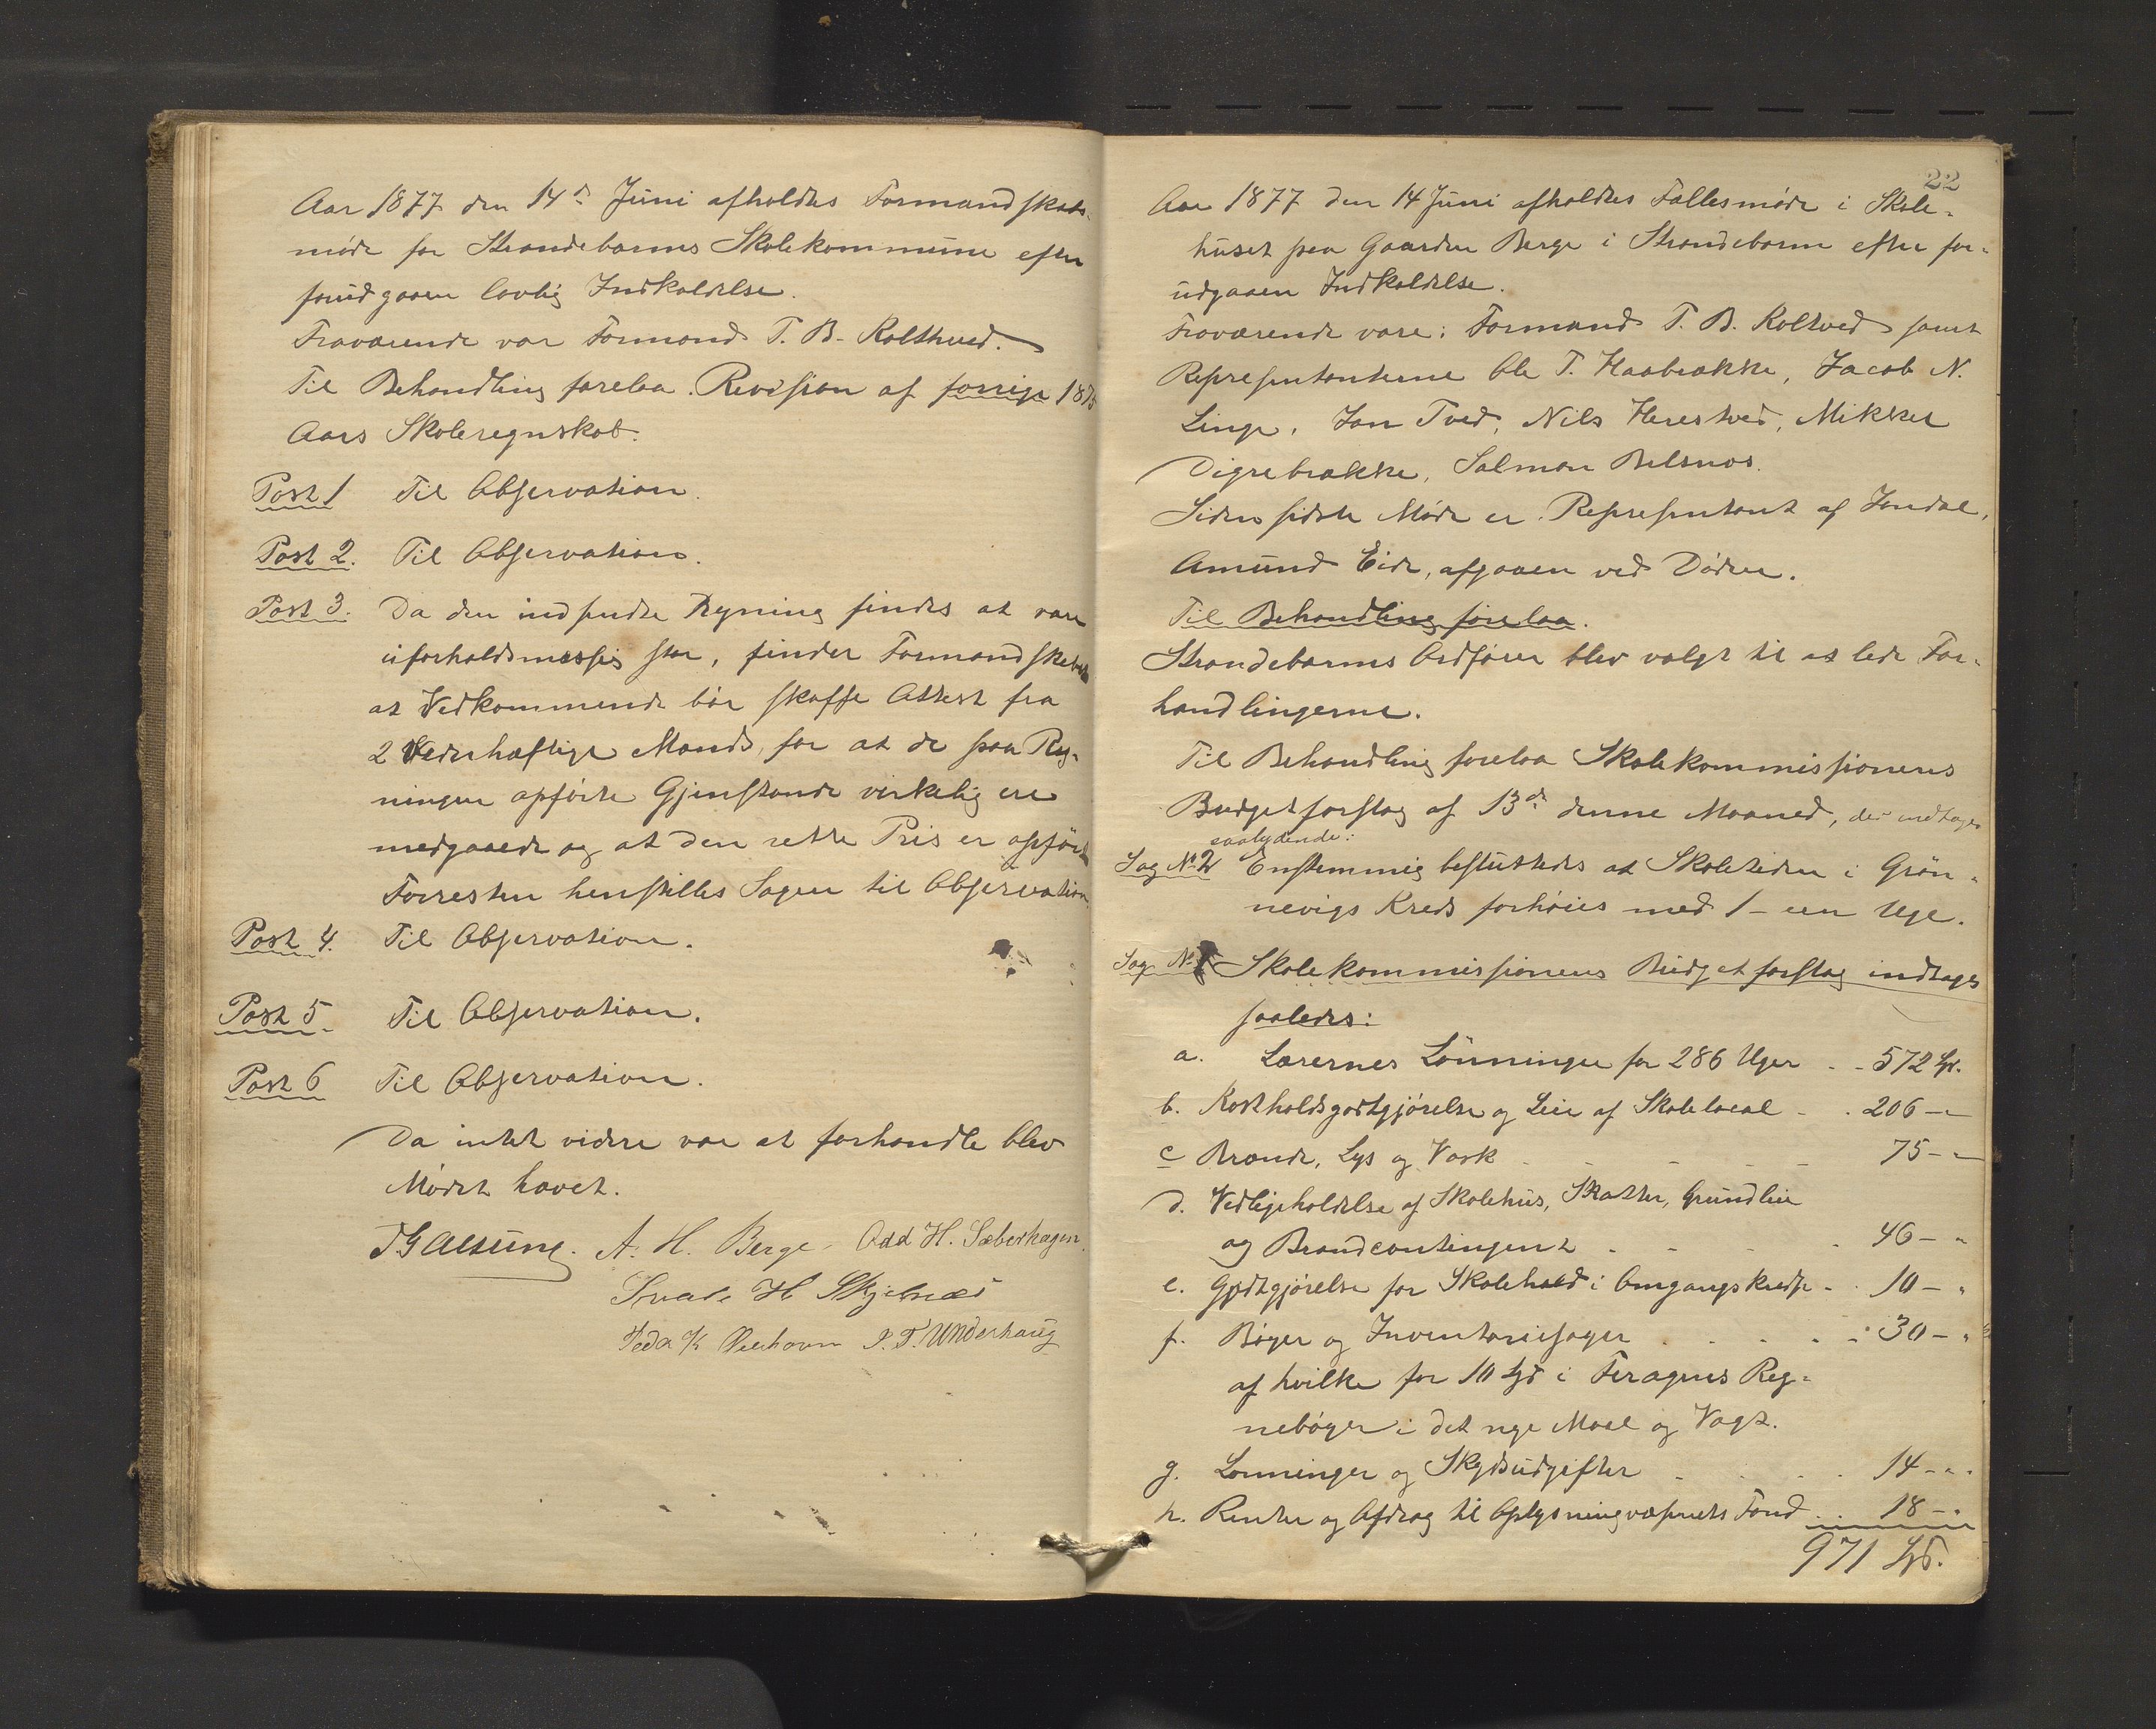 Aar 1877 den 14de Juni afholdtes Formandskabs-
møde for Strandebarms Skolekommune efter
forudgaaen lovlig Indkaldelse.
Fraværende var Formand T. B. Kolthved.
Til Behandling forelaa Revision af forrige 1875
Aars Skoleregnskab.
Post 1 Til Observation.
Post 2. Til Observation.
Post 3. Da den indsendte Regning findes at være
uforholdsmæssig stor, finder Formandskabet
at Vedkommende bør skaffe Attest fra
2 Vederhæftige Mænd, for at de paa Reg-
ningen opførte Gjenstande virkelig ere
medgaaede og at den rette Pris er opført
Forresten henstilles Sagen til Observation.
Post 4. Til Observation.
Post 5. Til Observation.
Post 6 Til Observation.
Da intet videre var at forhandle blev
Mødet hævet.
A. H. Berge Odd H. Sæberhagen.
H Skjelnæs
Peder K J. T. Underhaug
22
Aar 1877 den 14 Juni afholdtes Fællesmøde i Skole-
huset paa Gaarden Berge i Strandebarm efter for-
udgaaen Indkaldelse.
Fraværende vare: Formand T. B. Koltved samt
Representanterne Ole T. Haabrække, Jacob N.
Linge, Jon Tved, Nils Herestved, Mikkel
Digrebrække, Salmon Belsnæs.
Siden sidste Møde er Representant af Jondal,
Amund Eide, afgaaen ved Døden.
Til Behandling forelaa.
Strandebarms Ordfører blev valgt til at lede For-
handlingerne.
Til Behandling forelaa Skolekommissionens
Budgetforslag af 13de denne Maaned, der indtages
saalydende:
Sag No 2 Enstemmig besluttedes at Skoletiden i Grøn-
nevigs Kreds forhøies med 1 - een Uge.
Sag No 1 Skolekommissionens Budgetforslag indtages
saaledes:
a. Lærernes Lønninger for 286 Uger - - 572 Spd.
b. Kostholdsgodtgjørelse og Leie af Skolelocal - - 206 - "
c Brænde, Lys og Vask - - - - - 75 - "
d. Vedligeholdelse af Skolehus, Skatter, Grundleie
og Brandcontingent - - - - 46 - "
e. Godtgjørelse for Skolehold i Omgangskredse - - 10 - "
f. Bøger og Inventariesager - - - - 30 - "
af hvilke for 10 Spd i Geragnes Reg-
nebøger i det nye Maal og Vægt.
g. Lønninger og Skydsudgifter - - - - 14 - "
h. Renter og Afdrag til Oplysningsvæsnets Fond - - 18 - "
971 Spd.